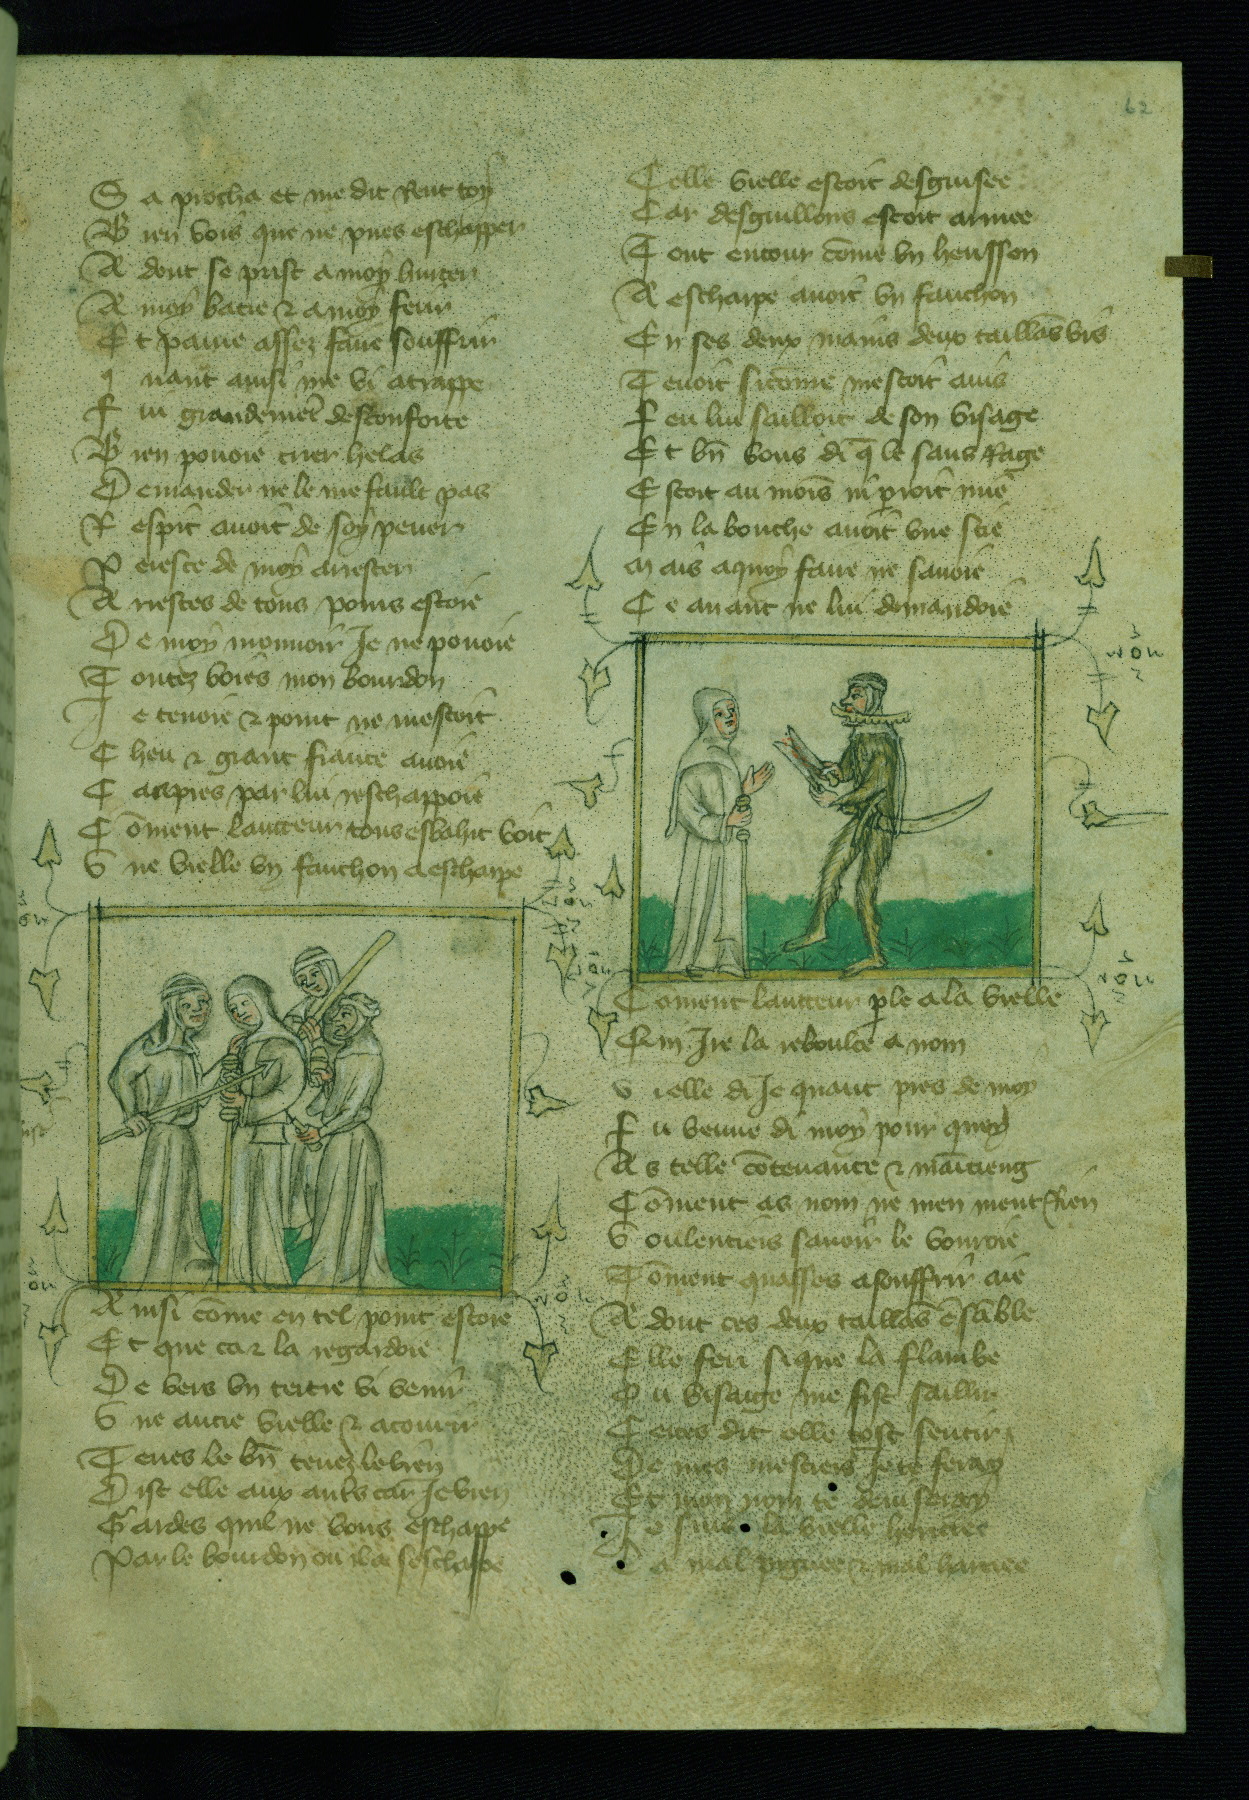 62
S a procha et me dit Rent toy
B ien vois que ne pues eschapper
A dont se prist a moy hurter
A moy batre & a moy ferir
E t paine assez faire souffrir
Q uant ainsi me vi atrappe
F u grandemēt desconforte
B ien pouoie crier helas
D emander ne le me fault pas
R espit auoit de soy peuer
P eresce de moy arrester
A rrestes de tous poins estoie
D e moy mouuoir Je ne pouoie
T outez voies mon bourdon
J e tenoie & point ne mestoit
C heu & grant fiance auoie
C anpres par lui reschappoie
C ōment lautteur tous esbahit voit
V ne vielle vn fauchon a escharpe
A insi cōme en tel point estoie
E t que ca & la regardoie
D e vers vn tertre vi venir
V ne autre vielle & acourir
T enes le bn̄ tenez le bien
D ist elle aux autrs car Je vien
G ardes quil ne vous eschappe
P ar le bourdon ou il a
C elle vielle estoit desguisee
C ar desguillons estoit armee
T out entour cōme vn herisson
A escharpe auoit vn fauchon
E n ses deux mains deux taillās vis
T enoit si cōme mestoit auis
F eu lui sailloit de son visage
E t bn̄ vous di q̄ le sans Rage
E stoit au mois
E n la bouche auoit vne scie
M ais a quoy faire ne sauoie
C e auant ne lui demandoie
C oment lautteur ple a la vielle
Q ui Jre la reboulee a nom
V ielle di Je quant pres de moy
F u venue di moy pour quoy
A s telle cōtenance & maītieng
C ōment as nom ne men ment Rien
V oulentiers sauoir le vouroie
C ōment quasses a souffrir aie
A dont ces deux taillās ēsāble
E lle feri si que la flambe
D u visaige me fist saillir
C ertes dit elle tost sentir
D e mes mestiers Je te feray
E t mon nom te deuiseray
J e suis la vielle
Q a mal pignee & mal